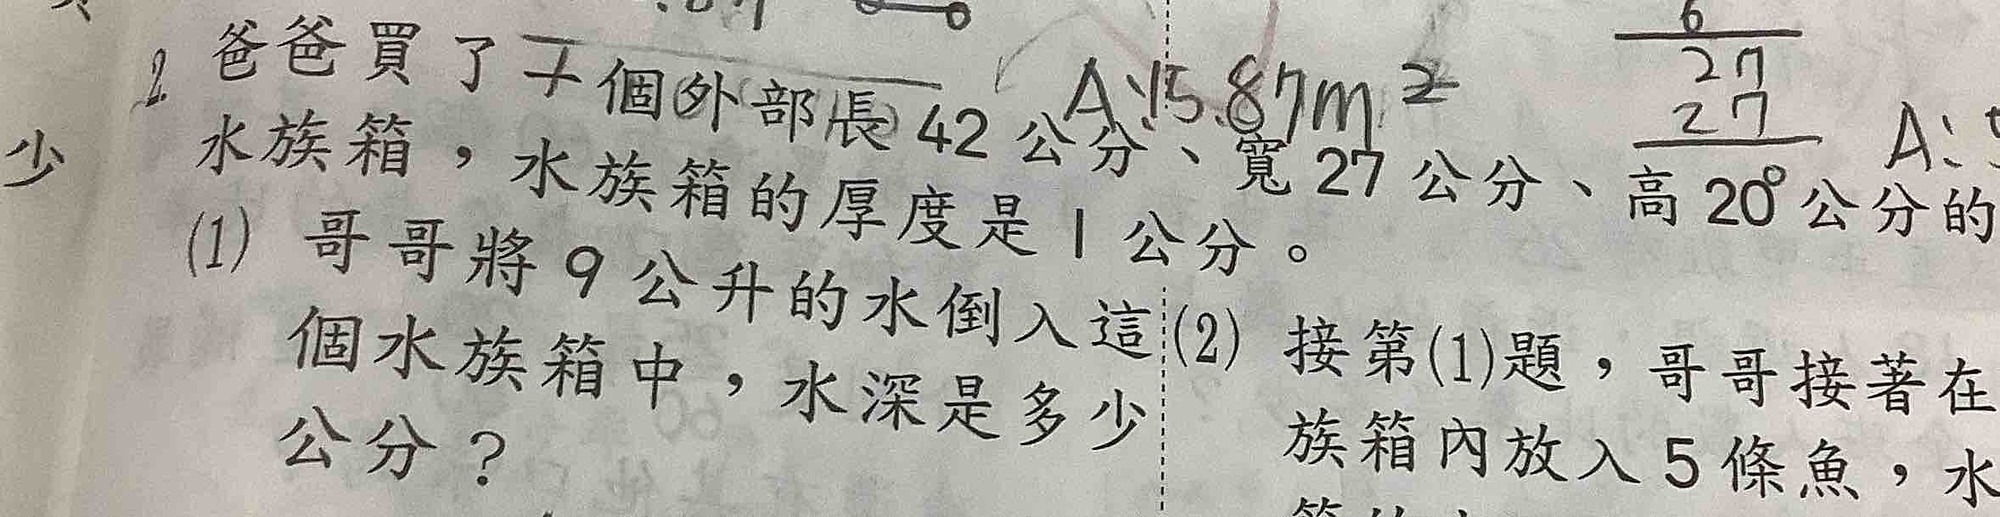 A:15.87m²
6
27
27
A:
2. 爸爸買了一個外部長42公分、寬27公分、高20公分的
水族箱，水族箱的厚度是1公分。
少
(1) 哥哥將9公升的水倒入這
個水族箱中，水深是多少
公分？
(2) 接第(1)題，哥哥接著在
族箱內放入5條魚，水